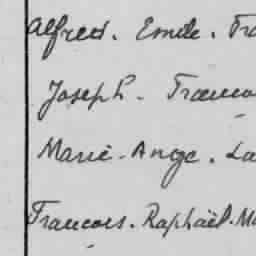 Alfred. Emile. Fra
Joseph. Franco
Marie-Ange. La
Francois. Raphaël. Ma